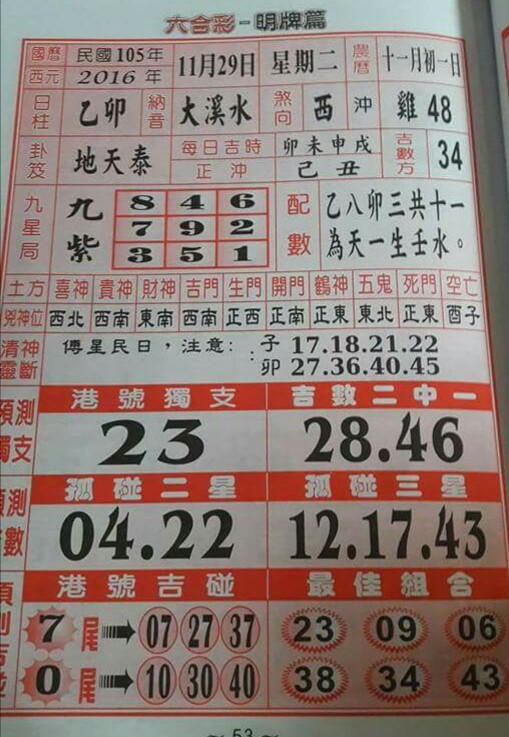 六合彩-明牌篇
國曆 民國105年 11月29日 星期二 農曆 十一月初一日
西元 2016年
日柱 乙卯 納音 大溪水 煞向 西 沖 雞 48
卦笈 地天泰 每日吉時 卯未申戌 吉數方 34
正沖 己丑
九星局 九紫 8 4 6 配數 乙八卯三共十一
7 9 2 為天一生壬水。
3 5 1
土方 喜神 貴神 財神 吉門 生門 開門 鶴神 五鬼 死門 空亡
凶神位 西北 西南 東南 西南 正西 正南 正東 東北 正東 酉子
清神靈斷 傅星民日，注意： 子 17.18.21.22
卯 27.36.40.45
預測獨支 港號獨支 吉數二中一
23 28.46
預測 數 孤碰二星 孤碰三星
04.22 12.17.43
港號吉碰 最佳組合
7 尾 07 27 37 23 09 06
0 尾 10 30 40 38 34 43
~ 53 ~